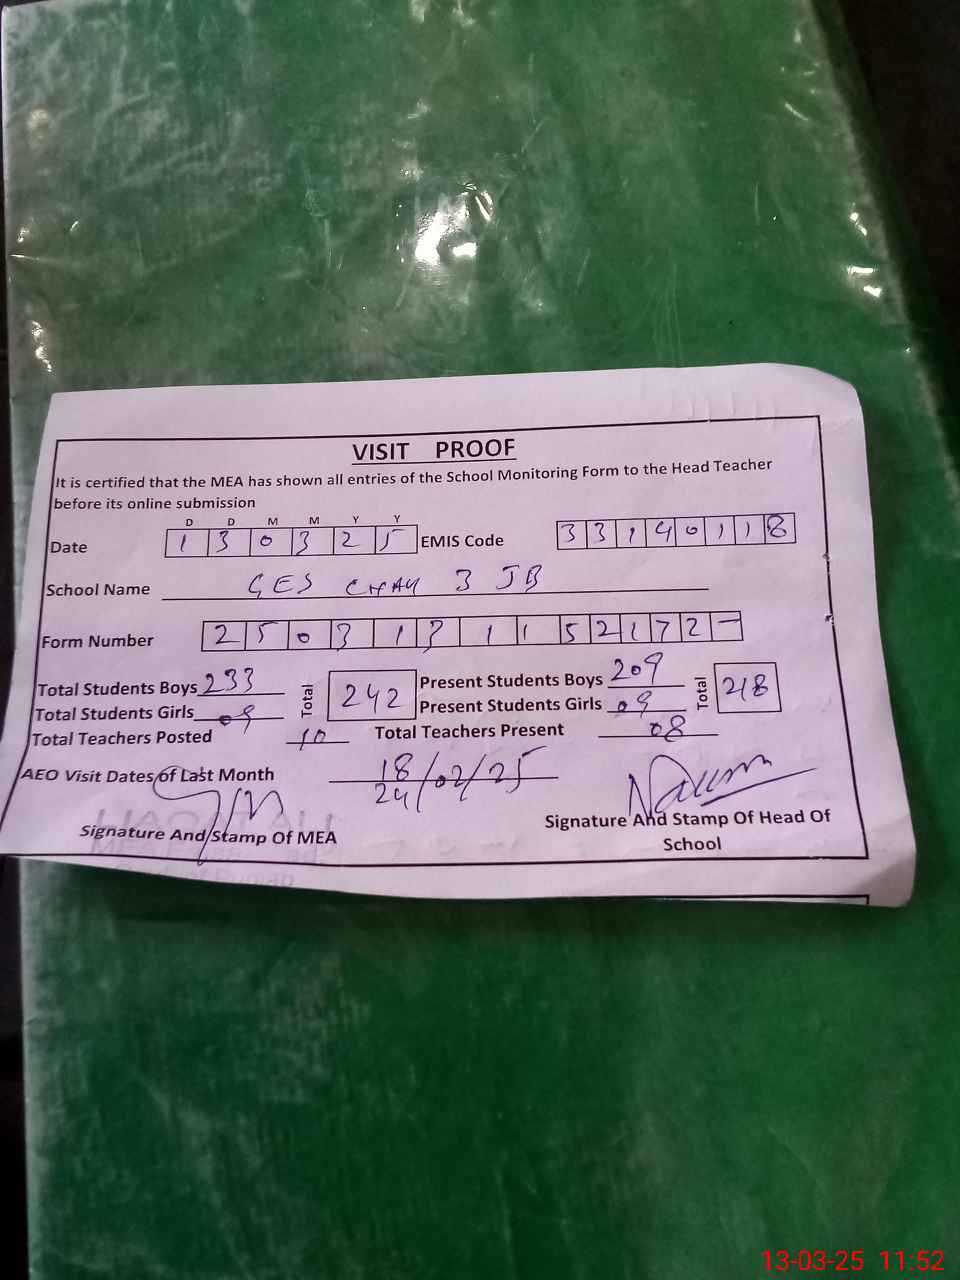 VISIT PROOF
It is certified that the MEA has shown all entries of the School Monitoring Form to the Head Teacher
before its online submission
D D M M Y Y
Date 1 3 0 3 2 5 EMIS Code 3 3 1 4 0 1 1 8
School Name GES CHAK 3 JB
Form Number 2 5 0 3 1 3 1 1 5 2 1 7 2 -
Total Students Boys 233 Total 242 Present Students Boys 209 Total 218
Total Students Girls 09 Present Students Girls 09
Total Teachers Posted 10 Total Teachers Present 08
AEO Visit Dates of Last Month 18/02/25
24
Signature And Stamp Of MEA
Signature And Stamp Of Head Of
School
13-03-25 11:52